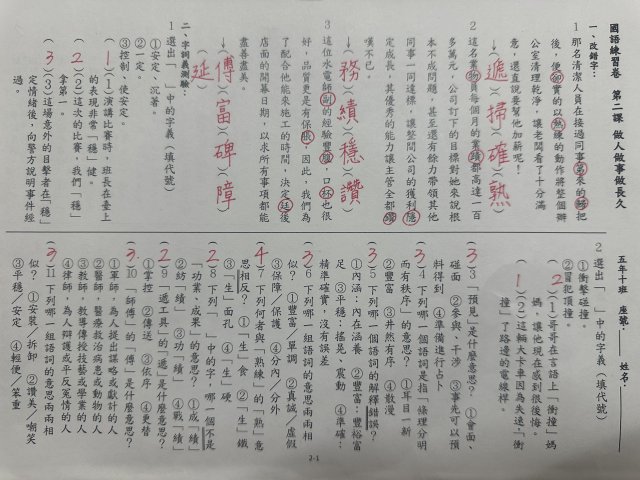 國語練習卷 第二課 做人做事做長久
一、改錯字：
1那名清潔人員在接過同事第來的歸把
後，便卻實的以熟練的動作將整個辦
公室清理乾淨，讓老闆看了十分滿
意，還直說要幫他加薪呢！
↓（遞）（掃）（確）（熟）
2這名業物員每個月的業蹟都高達一百
多萬元，公司訂下的目標對她來說根
本不成問題，甚至還有餘力帶領其他
同事一同達標，讓整間公司的獲利隱
定成長，其優秀的能力讓主管全都
嘆不已。
↓（務）（績）（穩）（讚）
3這位水電師副的經驗豐，口杯也很
好，品質更是有保，因此，我們為
了配合他能來施工的時間，決定廷後
店面的開幕日期，以求所有事項都能
盡善盡美。
↓（傅）（富）（碑）（障）
（延）
二、字詞義測驗：
1選出「 」中的字義（填代號）
①安定、沉著。
②一定。
③控制、使安定。
（1）(1)演講比賽時，班長在臺上
的表現非常「穩」健。
（2）(2)這次的比賽，我們「穩」
拿第一。
（3）(3)這場意外的目擊者在「穩」
定情緒後，向警方說明事件經
過。
五年十班 座號： 姓名：
2選出「 」中的字義（填代號）
①衝擊碰撞。
②冒犯頂撞。
（2）(1)哥哥在言語上「衝撞」媽
媽，讓他現在感到很後悔。
（1）(2)這輛大卡車因為失速，「衝
撞」了路邊的電線桿。
（3）3「預見」是什麼意思？ ①會面、
碰面 ②參與、干涉 ③事先可以預
料得到 ④準備進行占卜
（3）4下列哪一個語詞是指「條理分明
而有秩序」的意思？ ①耳目一新
②豐富 ③井然有序 ④散漫
（3）5下列哪一個語詞的解釋錯誤？
①內涵：內在涵養 ②豐富：豐裕富
足 ③平穩：搖晃、震動 ④準確：
精準確實，沒有誤差
（3）6下列哪一組語詞的意思兩兩相
似？ ①豐富/單調 ②真誠/虛假
③保障/保護 ④分內/分外
（4）7下列何者與「熟練」的「熟」意
思相反？ ①「生」食 ②「生」鏽
③「生」面孔 ④「生」硬
（2）8下列「 」中的字，哪一個不是
「功業、成果」的意思？ ①成「績」
②紡「績」 ③功「績」 ④戰「績」
（2）9「遞工具」的「遞」是什麼意思？
①掌控 ②傳送 ③依序 ④更替
（3）10「師傅」的「傅」是什麼意思？
①軍師，為人提出謀略或獻計的人
②醫師，醫療救治病患或動物的人
③教師，教導傳授技藝或學業的人
④律師，為人辯護或平反冤情的人
（3）11下列哪一組語詞的意思兩兩相
似？ ①安裝/拆卸 ②讚美/嘲笑
③平穩/安定 ④輕便/笨重
2-1